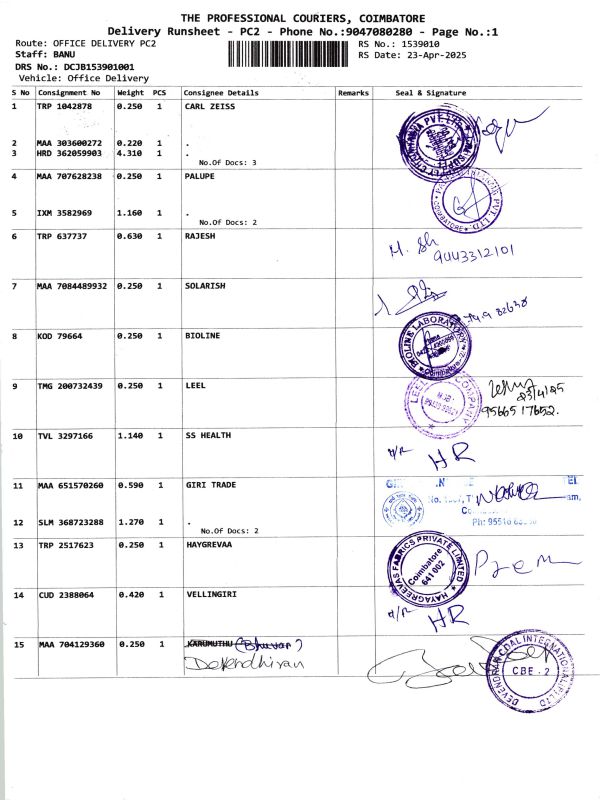 THE PROFESSIONAL COURIERS, COIMBATORE
Delivery Runsheet - PC2 - Phone No.:9047080280 - Page No.:1
Route: OFFICE DELIVERY PC2
RS No.: 1539010
Staff: BANU
RS Date: 23-Apr-2025
DRS No.: DCJB153901001
Vehicle: Office Delivery
S No Consignment No Weight PCS Consignee Details Remarks Seal & Signature
1 TRP 1042878 0.250 1 CARL ZEISS
2 MAA 303600272 0.220 1 .
3 HRD 362059903 4.310 1 .
No.Of Docs: 3
4 MAA 707628238 0.250 1 PALUPE
5 IXM 3582969 1.160 1 .
No.Of Docs: 2
COIMBATORE PVT. LTD.
6 TRP 637737 0.630 1 RAJESH
9443312101
7 MAA 7084489932 0.250 1 SOLARISH
8 KOD 79664 0.250 1 BIOLINE
BIOLINE LABORATORY
Coimbatore-2
9 TMG 200732439 0.250 1 LEEL
LEEL COMPANY
23/4/25
9566517652.
10 TVL 3297166 1.140 1 SS HEALTH
H/R HR
11 MAA 651570260 0.590 1 GIRI TRADE
12 SLM 368723288 1.270 1 .
No.Of Docs: 2
13 TRP 2517623 0.250 1 HAYGREVAA
HAYAGREEVAS FABRICS PRIVATE LIMITED
Coimbatore
641 002
Prem
14 CUD 2388064 0.420 1 VELLINGIRI
H/R HR
15 MAA 704129360 0.250 1 KARUMUTHU (Bhuvan)
Devendhiran
DEVENDRAN COAL INTERNATIONAL (P) LTD
CBE - 2